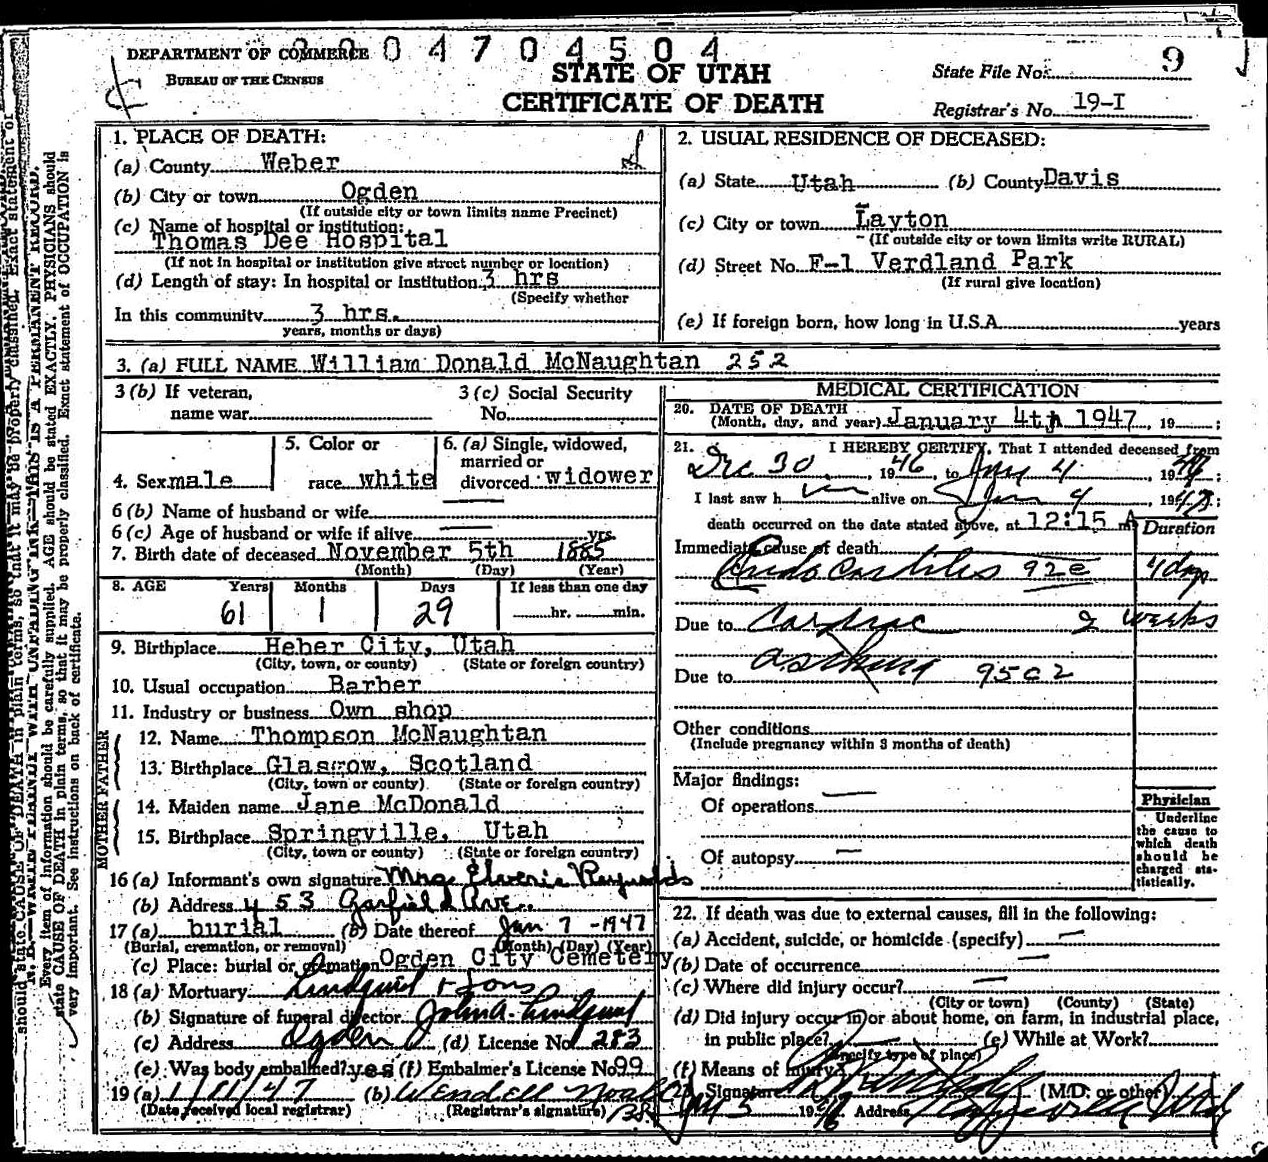 004704504
DEPARTMENT OF COMMERCE
BUREAU OF THE CENSUS
STATE OF UTAH
CERTIFICATE OF DEATH
State File No. 9
Registrar's No. 19-I
1. PLACE OF DEATH:
(a) County Weber
(b) City or town Ogden
(If outside city or town limits name Precinct)
(c) Name of hospital or institution:
Thomas Dee Hospital
(If not in hospital or institution give street number or location)
(d) Length of stay: In hospital or institution 3 hrs
(Specify whether
In this community 3 hrs.
years, months or days)
2. USUAL RESIDENCE OF DECEASED:
(a) State Utah (b) County Davis
(c) City or town Layton
(If outside city or town limits write RURAL)
(d) Street No. F-1 Verdland Park
(If rural give location)
(e) If foreign born, how long in U.S.A. years
3. (a) FULL NAME William Donald McNaughtan 252
3 (b) If veteran,
name war
3 (c) Social Security
No.
4. Sex male
5. Color or
race white
6. (a) Single, widowed,
married or
divorced widower
6 (b) Name of husband or wife
6 (c) Age of husband or wife if alive yrs.
7. Birth date of deceased November 5th 1885
(Month) (Day) (Year)
8. AGE Years Months Days If less than one day
61 1 29 hr. min.
9. Birthplace Heber City, Utah
(City, town, or county) (State or foreign country)
10. Usual occupation Barber
11. Industry or business Own shop
FATHER
12. Name Thompson McNaughtan
13. Birthplace Glasgow, Scotland
(City, town or county) (State or foreign country)
MOTHER
14. Maiden name Jane McDonald
15. Birthplace Springville, Utah
(City, town or county) (State or foreign country)
16 (a) Informant's own signature Mrs. Reynolds
(b) Address 453 Garfield Ave.
17 (a) burial (b) Date thereof Jan 7 -1947
(Burial, cremation, or removal) (Month) (Day) (Year)
(c) Place: burial or cremation Ogden City Cemetery
18 (a) Mortuary Lindquist & Sons
(b) Signature of funeral director John A. Lindquist
(c) Address Ogden (d) License No. 283
(e) Was body embalmed? yes (f) Embalmer's License No. 99
19 (a) 1/11/47 (b) Wendell
(Date received local registrar) (Registrar's signature)
MEDICAL CERTIFICATION
20. DATE OF DEATH
(Month, day, and year) January 4th 1947, 19 ;
21. I HEREBY CERTIFY, That I attended deceased from
Dec 30, 1946, to Jany 4, 19
I last saw h alive on Jan 4, 19 ;
death occurred on the date stated above, at 12:15 A m
Duration
Immediate cause of death
92e 4 days
Due to Cardiac 2 weeks
asthma
Due to 95c2
Other conditions
(Include pregnancy within 3 months of death)
Major findings:
Of operations
Of autopsy
Physician
Underline
the cause to
which death
should be
charged sta-
tistically.
22. If death was due to external causes, fill in the following:
(a) Accident, suicide, or homicide (specify)
(b) Date of occurrence
(c) Where did injury occur?
(City or town) (County) (State)
(d) Did injury occur in or about home, on farm, in industrial place,
in public place? (e) While at Work?
(Specify type of place)
(f) Means of injury
Signature (M.D. or other)
Jany 5 19 Address Kaysville Utah
Every item of information should be carefully supplied. AGE should be stated EXACTLY. PHYSICIANS should
state CAUSE OF DEATH in plain terms, so that it may be properly classified. Exact statement of OCCUPATION is
very important. See instructions on back of certificate.